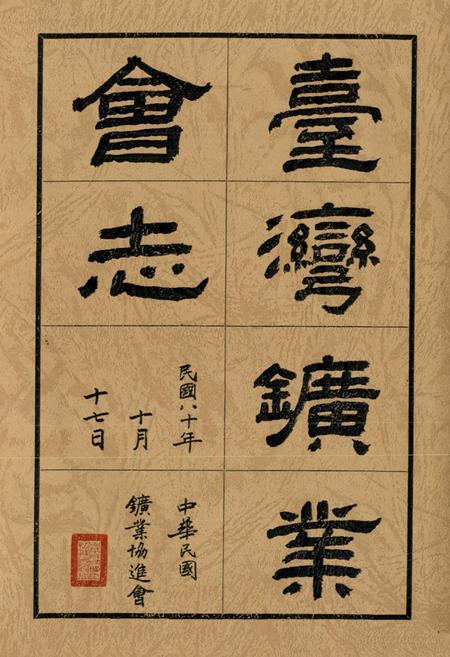 臺灣鑛業
會志
民國八十年
十月
十七日
中華民國
鑛業協進會